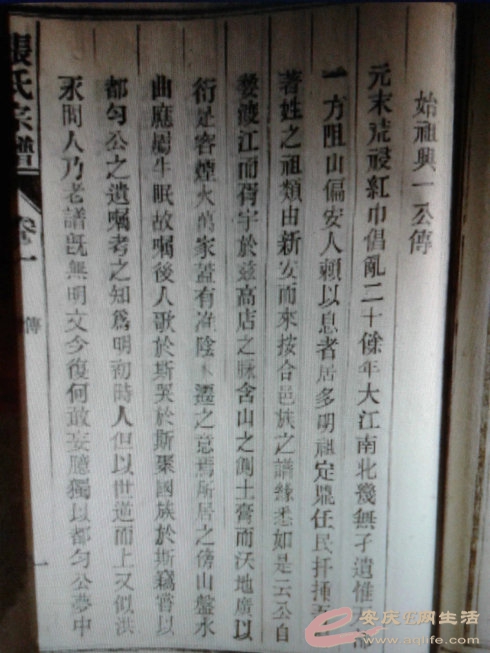 始祖興一公傳
元末荒祲紅巾倡亂二十餘年大江南北幾無孑遺惟
一方阻山偏安人賴以息者居多明祖定鼎任民扦插
著姓之祖類由新安而來按合邑族之譜緣悉如是云公自
婺渡江而胥宇於茲高店之脉含山之側土膏而沃地廣以
衍足容煙火萬家蓋有淮陰之意焉所居之傍山盤水
曲牛眠故囑後人歌於斯哭於斯聚國族於斯竊嘗以
都勻公之遺囑考之知爲明初時人但以世道而上又似洪
永間人乃老譜旣無明文今復何敢妄臆獨以都勻公夢中
張氏宗譜 卷一 傳 一
安庆E网生活
www.aqlife.com